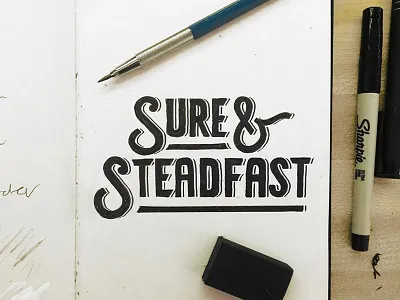 SURE &
STEADFAST
Sharpie